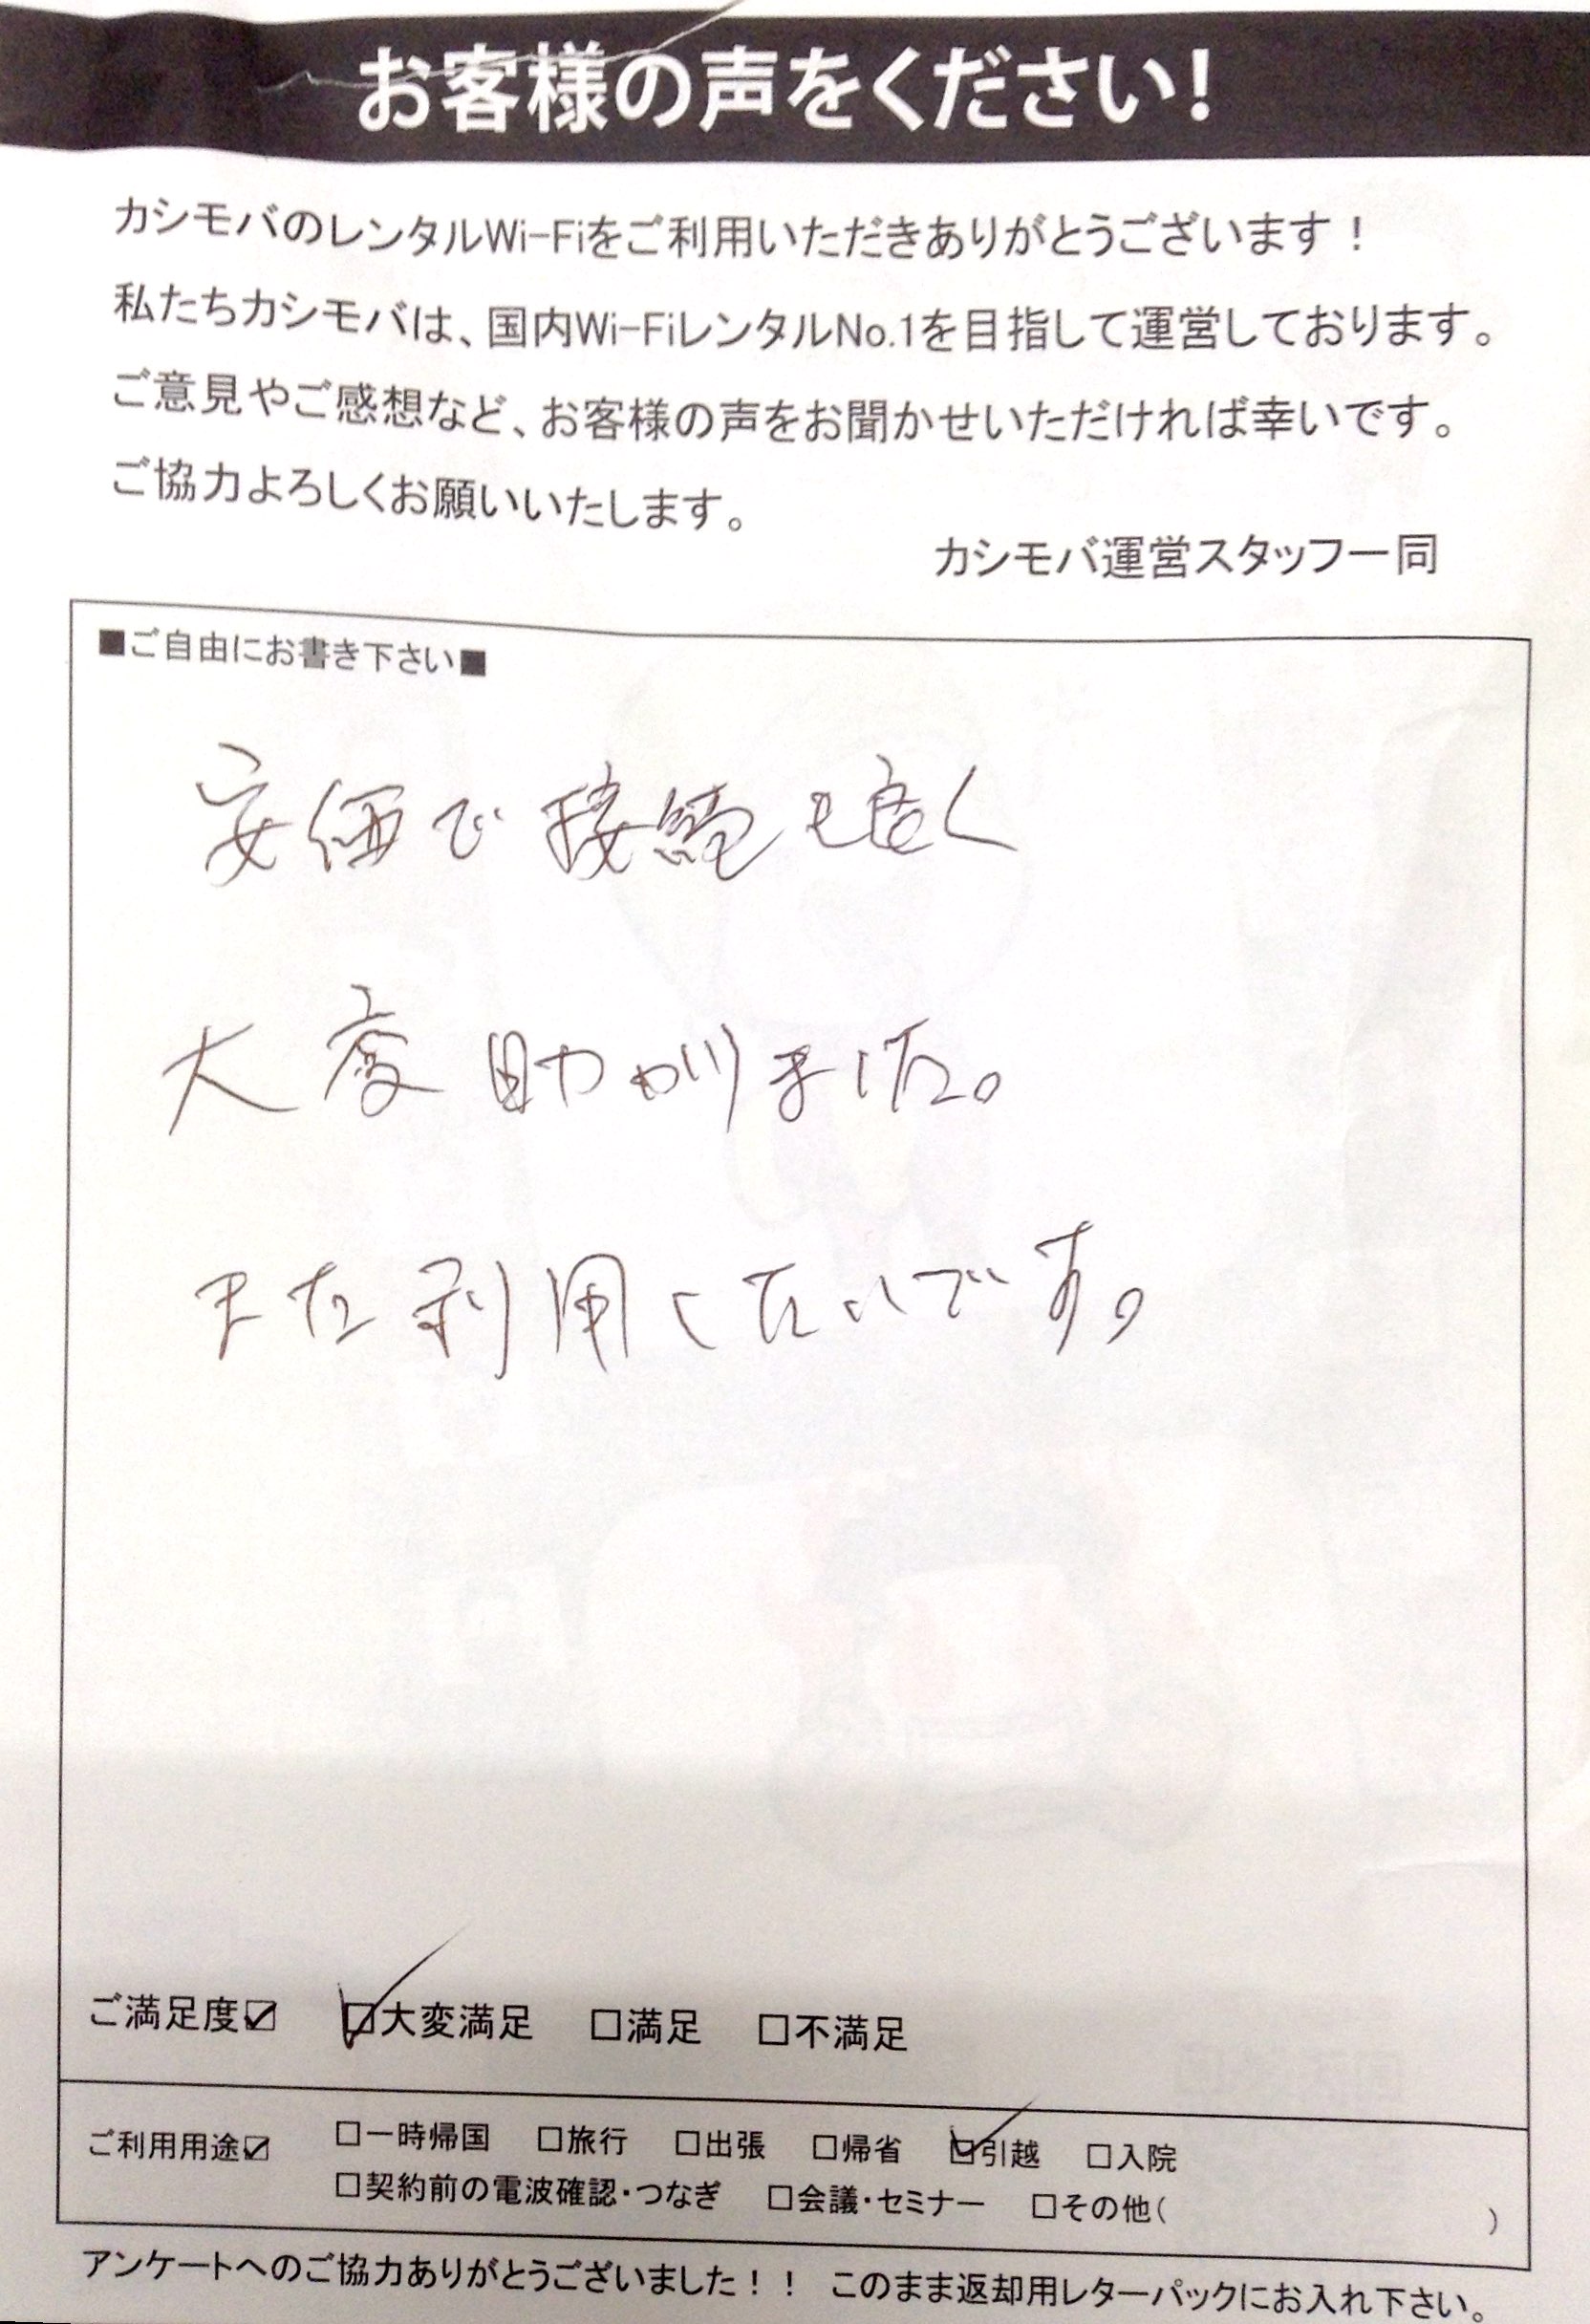 お客様の声をください!
カシモバのレンタルWi-Fiをご利用いただきありがとうございます!
私たちカシモバは、国内Wi-FiレンタルNo.1を目指して運営しております。
ご意見やご感想など、お客様の声をお聞かせいただければ幸いです。
ご協力よろしくお願いいたします。
カシモバ運営スタッフ一同
■ご自由にお書き下さい■
安価で接続も良く
大変助かりました。
また利用したいです。
ご満足度☑ ☑大変満足 □満足 □不満足
ご利用用途☑ □一時帰国 □旅行 □出張 □帰省 ☑引越 □入院
□契約前の電波確認・つなぎ □会議・セミナー □その他( )
アンケートへのご協力ありがとうございました!! このまま返却用レターパックにお入れ下さい。